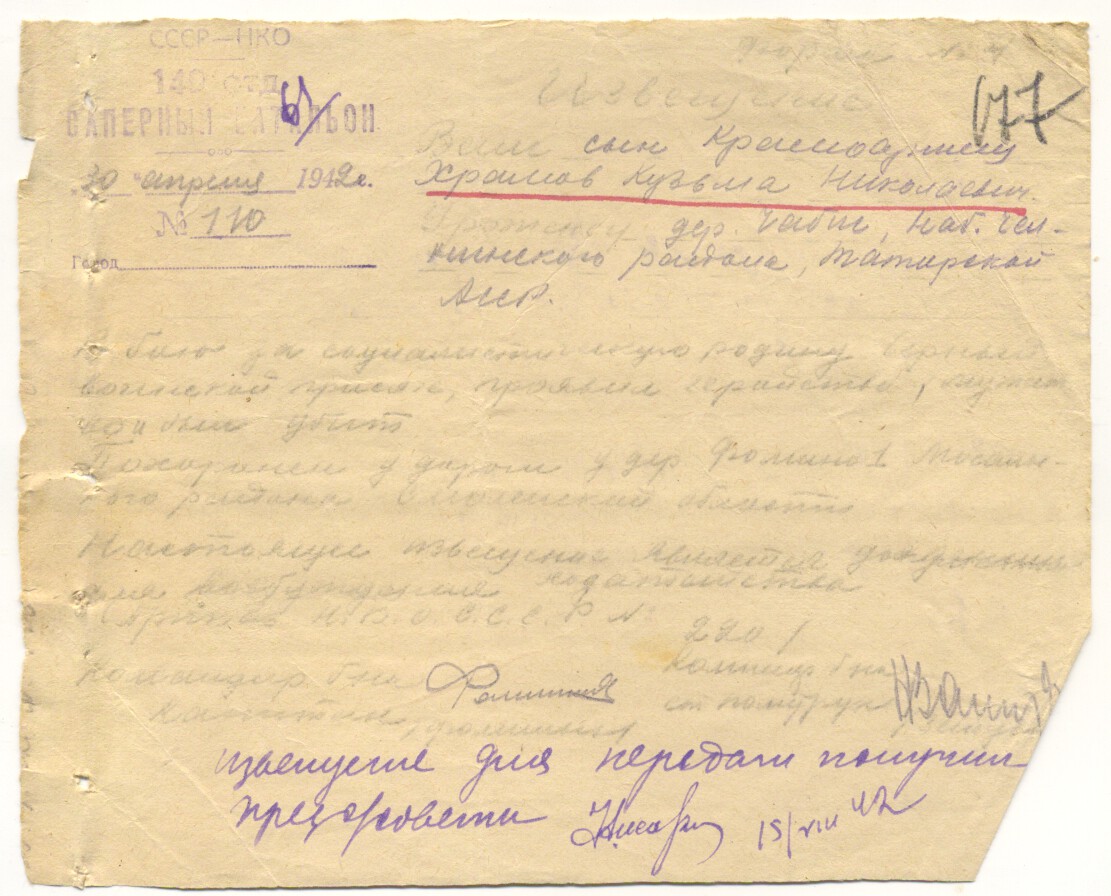 СССР—НКО
140 отд.
САПЕРНЫЙ БАТАЛЬОН
30 апреля 1942 г.
№ 110
Город
Форма № 4
677
Извещение
Ваш сын Красноармеец
Храмов Кузьма Николаевич
Уроженец дер. Чабы, Наб. Чел-
нинского района, Татарской
АССР.
В бою за социалистическую родину, верный
воинской присяге, проявил геройство, мужест
во и был убит
Похоронен у дороги у дер Фомино 1 Мосальс-
кого района Смоленской области
Настоящее извещение является документом
для возбуждения ходатайства
Приказ Н.К.О. С.С.С.Р №
220 /
Командир б-на
Комиссар б-на
капитан
ст политрук
извещение для передачи получил
пред с/совета
15/VIII 42